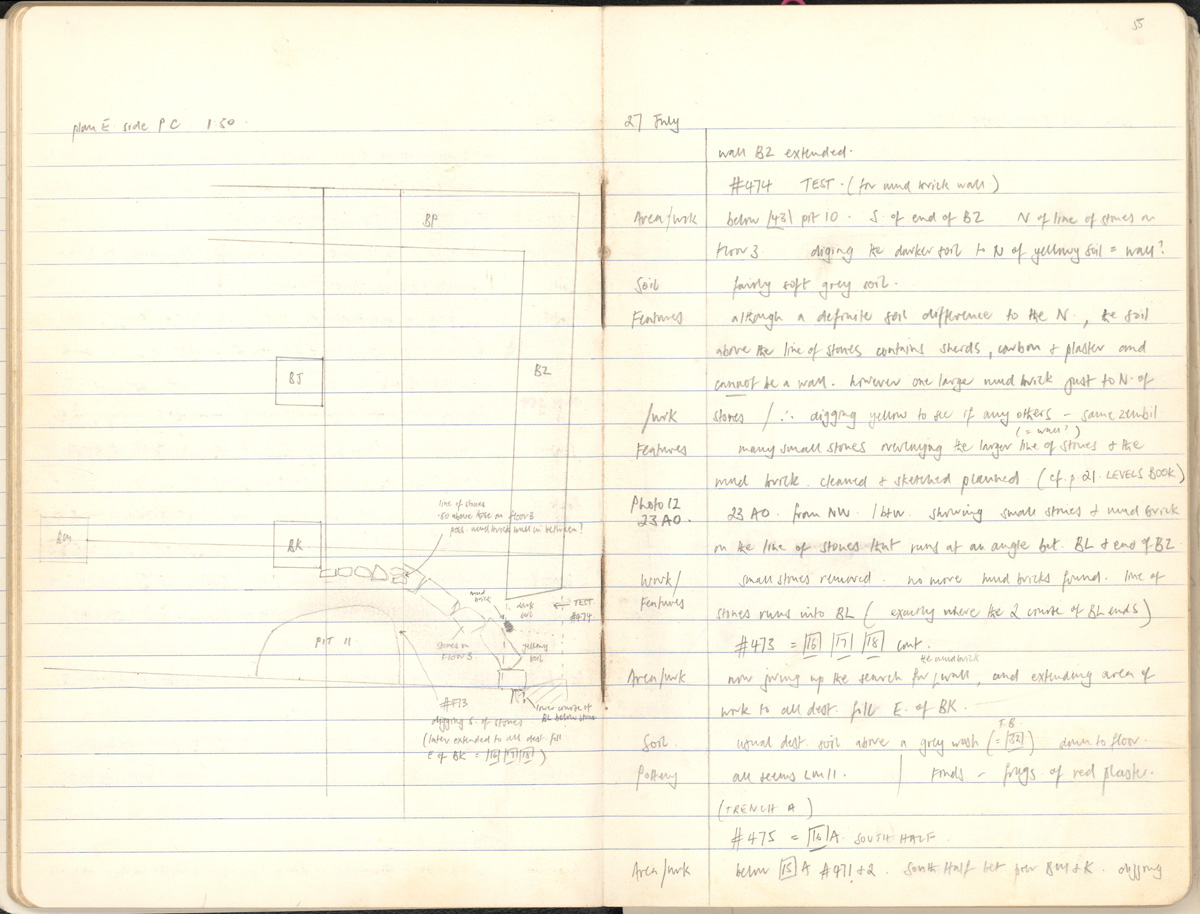 plan E side PC 1:50
BP
BZ
BJ
line of stones
.50 above those on floor 3
poss. mud brick wall in between?
BM
BK
mud
brick
dark
soil
TEST
#474
PIT 11
stones on
FLOOR 3
yellowy
soil
#473
digging S. of stones
(later extended to all dest. fill
E of BK = |16| |17| |18|)
lower course of
BL below stones
55
27 July
wall BZ extended.
#474 TEST. (for mud brick wall)
Area/wrk below |43| pit 10. S. of end of BZ N of line of stones on
floor 3 digging the darker soil to N of yellowy soil = wall?
Soil fairly soft grey soil.
Features although a definite soil difference to the N., the soil
above the line of stones contains sherds, carbon & plaster and
cannot be a wall. however one large mud brick just to N. of
/wrk stones / ∴ digging yellow to see if any others – same zembil
(= wall?)
Features many small stones overlaying the larger line of stones & the
mud brick. cleaned & sketched planned (cf. p. 21. LEVELS BOOK)
Photo 12
23 AO. 23 AO. from NW. 1 b+w. showing small stones & mud brick
on the line of stones that runs at an angle bet. BL & end of BZ
Work/ small stones removed. no more mud bricks found. line of
Features
stones runs into BL (exactly where the 2 course of BL ends)
#473 = |16| |17| |18| cont.
the mud brick
Area/wrk now giving up the search for wall, and extending area of
work to all dest. fill E. of BK.
T.B.
Soil. usual dest. soil above a grey wash (= |32|) down to floor.
Pottery all seems LM11. / Finds – frags of red plaster.
(TRENCH A)
#475 = |16| A. SOUTH HALF.
Area/wrk below |15| A #471 & 2. South Half bet BM & K. digging